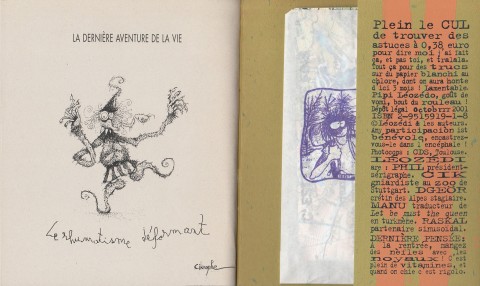 LA DERNIÈRE AVENTURE DE LA VIE
Le rhumatisme déformart
Plein le CUL
de trouver des
astuces à 0,38 euro
pour dire moi j'ai fait
ça, et pas toi, et tralala.
Tout ça pour des trucs
sur du papier blanchi au
chlore, dont on aura honte
d'ici 3 mois ! Lamentable.
Pipi Léozédo, goût de
vomi, bout du rouleau !
Dépôt légal octobrrr 2001
ISBN 2-9515919-1-8
©Léozédi & les auteurs.
Any participación ist
bénévolq, encastrez-
vous-le dans l'encéphale !
Photocops : CDS, Toulouse.
LEOZEDI
are : PHIL président-
sérigraphe. CIK
gniardiste au zoo de
Stuttgart. DGEOR
crétin des Alpes stagiaire.
MANU traducteur de
Let be must the queen
en turkmène. RASKAL
partenaire sinusoïdal.
DERNIÈRE PENSÉE:
A la rentrée, mangez
des nèfles avec les
noyaux ! C'est
plein de vitamines, et
quand on chie c'est rigolo.